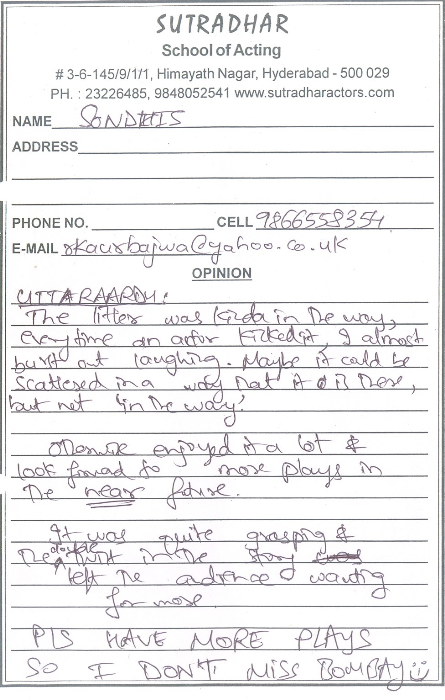 SUTRADHAR
School of Acting
# 3-6-145/9/1/1, Himayath Nagar, Hyderabad - 500 029
PH. : 23226485, 9848052541 www.sutradharactors.com
NAME SONDHIS
ADDRESS
PHONE NO. CELL 9866558354
E-MAIL rkaurbajwa@yahoo.co.uk
OPINION
UTTARAARDH:
The litter was kinda in the way,
everytime an actor kicked it, I almost
burst out laughing. Maybe it could be
scattered in a way that it is there,
but not 'in the way'.
Otherwise enjoyed it a lot &
look forward to more plays in
the near future.
It was quite grasping &
the double twist in the story
left the audience wanting
for more
PLS HAVE MORE PLAYS
SO I DON'T MISS BOMBAY